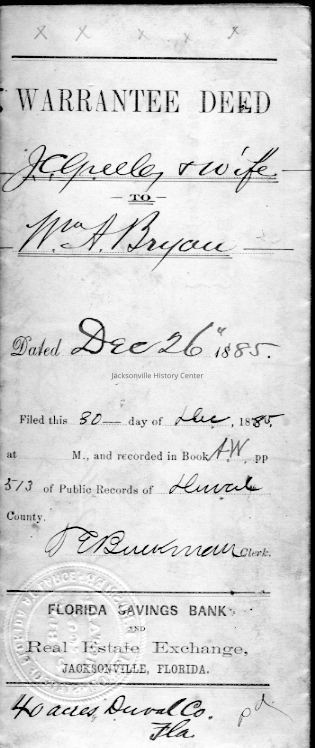 x x x x x
WARRANTEE DEED
J C Greeley & wife
TO
Wm A. Bryan
Dated Dec 26" 1885.
Jacksonville History Center
Filed this 30 — day of Dec, 1885
at M., and recorded in Book A.W, pp
513 of Public Records of Duval
County.
T E Buckman Clerk.
FLORIDA SAVINGS BANK
AND
Real Estate Exchange,
JACKSONVILLE, FLORIDA.
40 acres Duval Co.
Fla
pd.